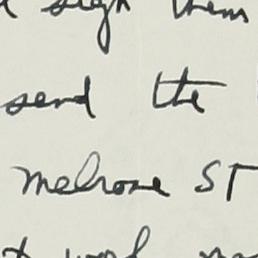 sign them
send the
Melrose ST